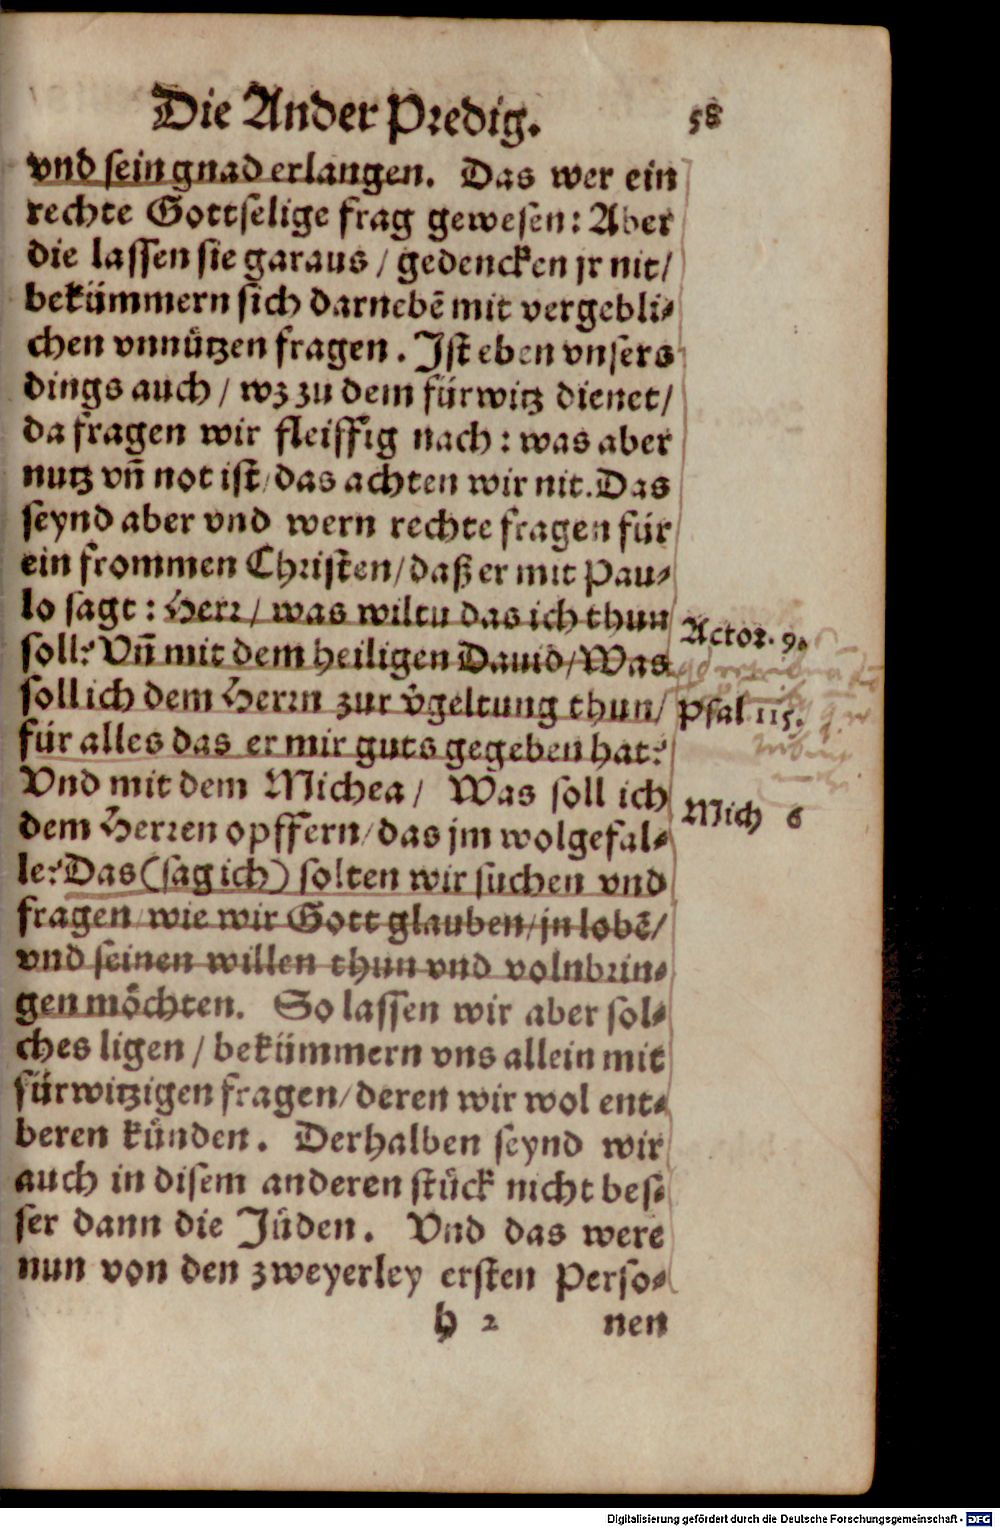 Die Ander Predig. 58
vnd sein gnad erlangen. Das wer ein
rechte Gottselige frag gewesen: Aber
die lassen sie garaus / gedencken jr nit/
bekümmern sich darnebē mit vergebli⸗
chen vnnützen fragen. Ist eben vnsers
dings auch / wz zu dem fürwitz dienet/
da fragen wir fleissig nach: was aber
nutz vñ not ist/das achten wir nit. Das
seynd aber vnd wern rechte fragen für
ein frommen Christen/daß er mit Pau⸗
lo sagt: Herr/ was wiltu das ich thun
soll? Vñ mit dem heiligen Dauid/Was
soll ich dem Herrn zur v̄geltung thun/
für alles das er mir guts gegeben hat?
Vnd mit dem Michea/ Was soll ich
dem Herren opffern/das jm wolgefal⸗
le? Das (sag ich) solten wir suchen vnd
fragen/wie wir Gott glauben/jn lobē/
vnd seinen willen thun vnd volnbrin⸗
gen möchten. So lassen wir aber sol⸗
ches ligen / bekümmern vns allein mit
fürwitzigen fragen/deren wir wol ent⸗
beren künden. Derhalben seynd wir
auch in disem anderen stück nicht bes⸗
ser dann die Jüden. Vnd das were
nun von den zweyerley ersten Perso⸗
h 2 nen
Actor. 9.
Psal 115.
Mich 6
Digitalisierung gefördert durch die Deutsche Forschungsgemeinschaft - DFG